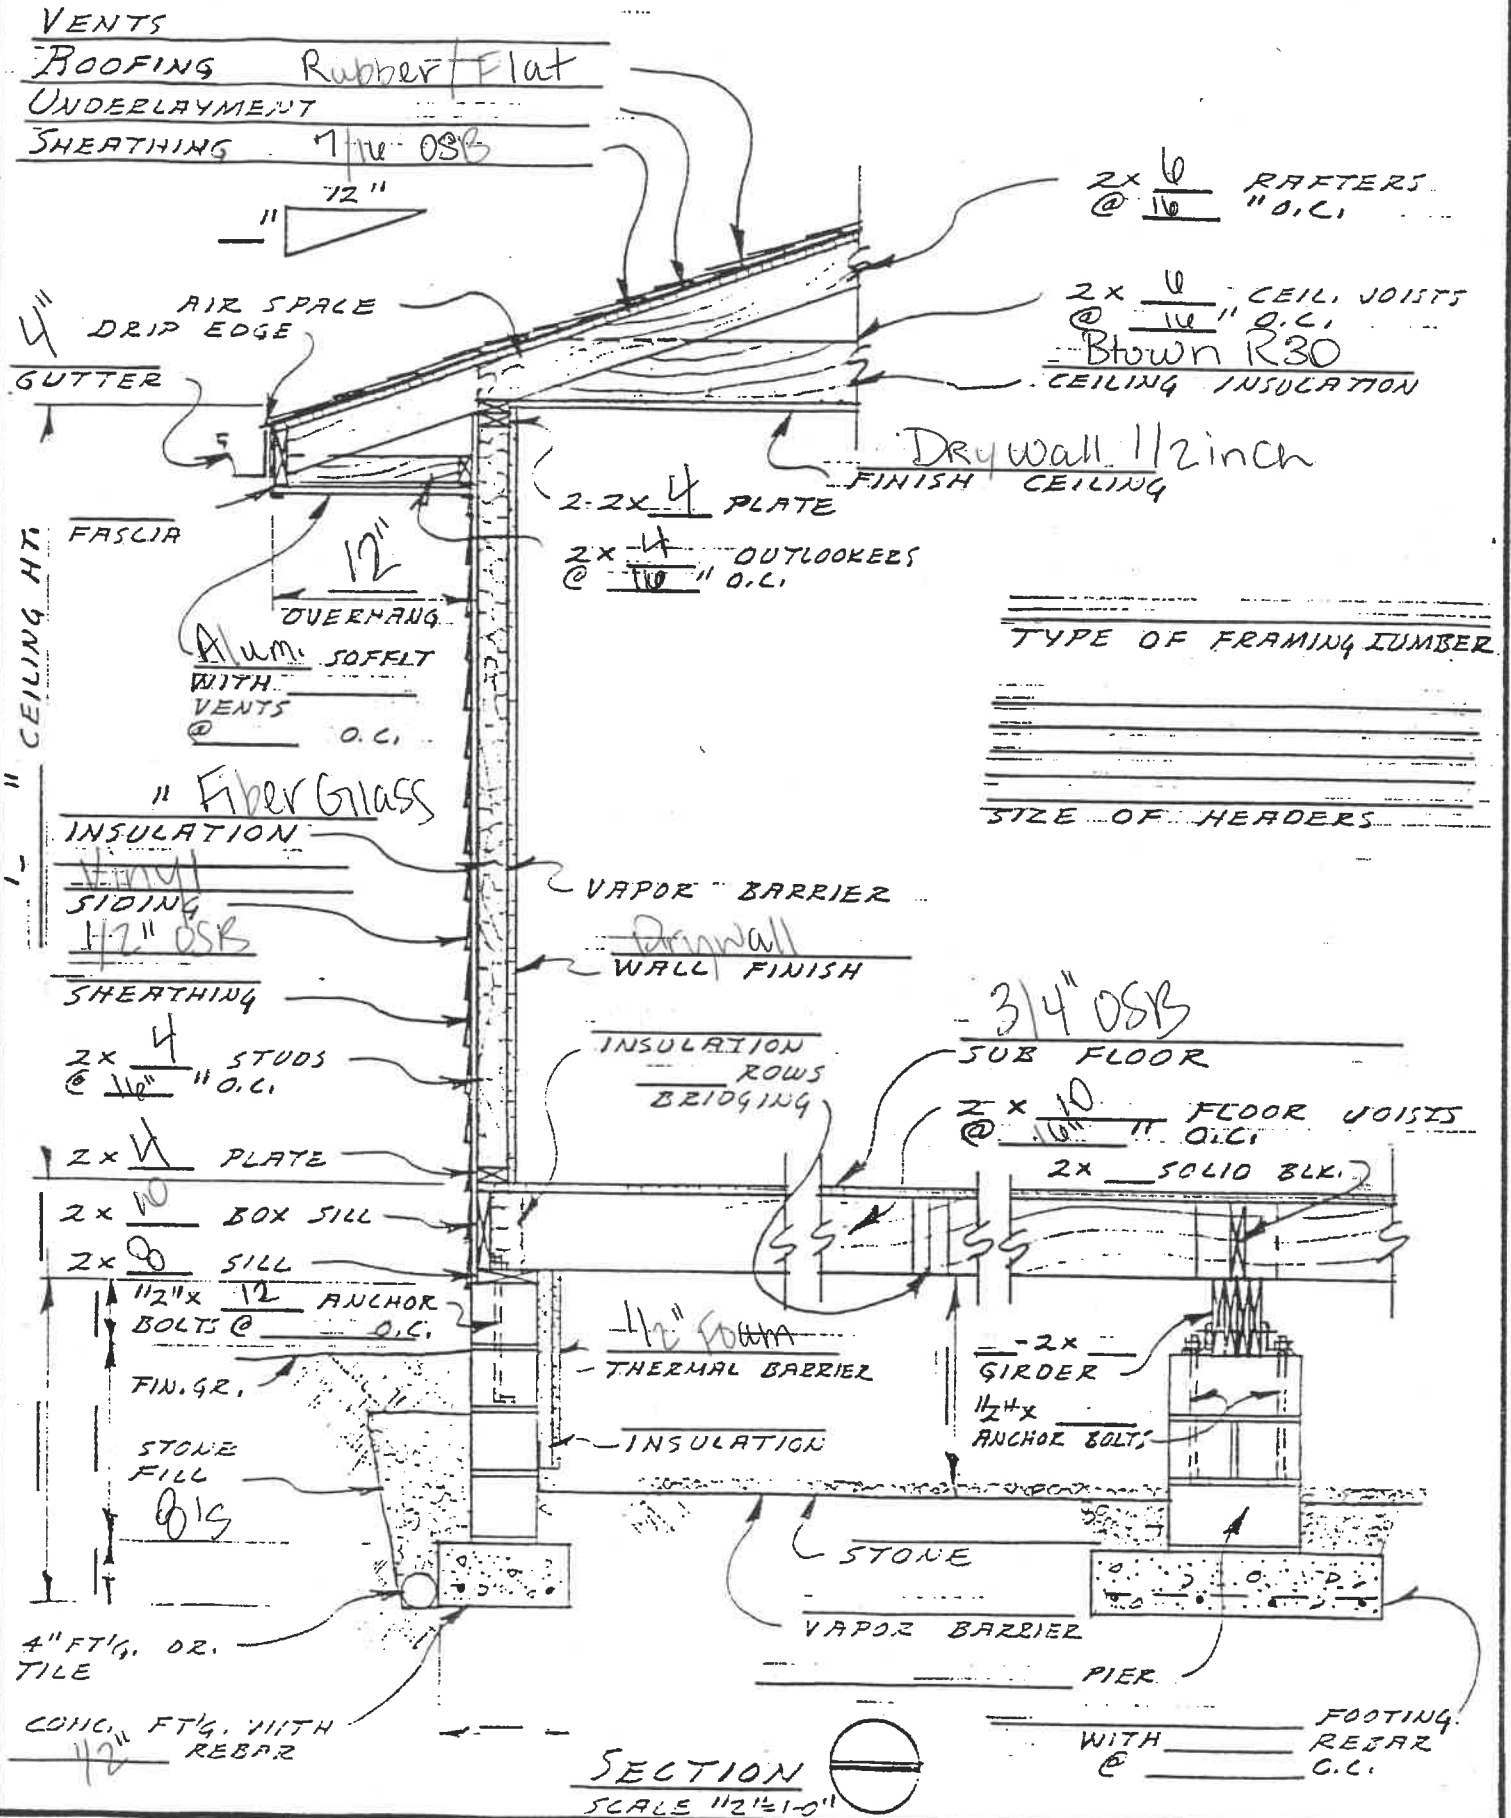 VENTS
ROOFING Rubber/Flat
UNDERLAYMENT
SHEATHING 7/16 OSB
12"
"
2x 6 RAFTERS
@ 16 " O.C.
2x 6 " CEIL. JOISTS
@ 16 " O.C.
Blown R30
CEILING INSULATION
AIR SPACE
4"
DRIP EDGE
GUTTER
Drywall 1/2 inch
FINISH CEILING
2-2x 4 PLATE
2x 4 OUTLOOKERS
@ 16 " O.C.
FASCIA
12"
OVERHANG
Alum. SOFFIT
WITH
VENTS
@ O.C.
'- " CEILING HT.
TYPE OF FRAMING LUMBER
SIZE OF HEADERS
" FiberGlass
INSULATION
Vinyl
SIDING
1/2" OSB
SHEATHING
VAPOR BARRIER
Drywall
WALL FINISH
2x 4 STUDS
@ 16" " O.C.
INSULATION
ROWS
BRIDGING
3/4" OSB
SUB FLOOR
2x 10 FLOOR JOISTS
@ 16" " O.C.
2x SOLID BLK.
2x 4 PLATE
2x 10 BOX SILL
2x 8 SILL
1/2"x 12 ANCHOR
BOLTS @ O.C.
1/2" Foam
THERMAL BARRIER
-2x
GIRDER
1/2"x
ANCHOR BOLTS
FIN. GR.
INSULATION
STONE
FILL
8's
STONE
VAPOR BARRIER
PIER
4" FT'G. DR.
TILE
CONC. FT'G. WITH
42" REBAR
FOOTING
WITH REBAR
@ O.C.
SECTION
SCALE 1/2"=1'-0"